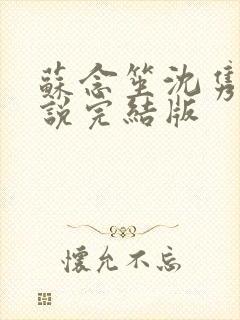 蘇念笙沈雋
說完結版
懷允不忘